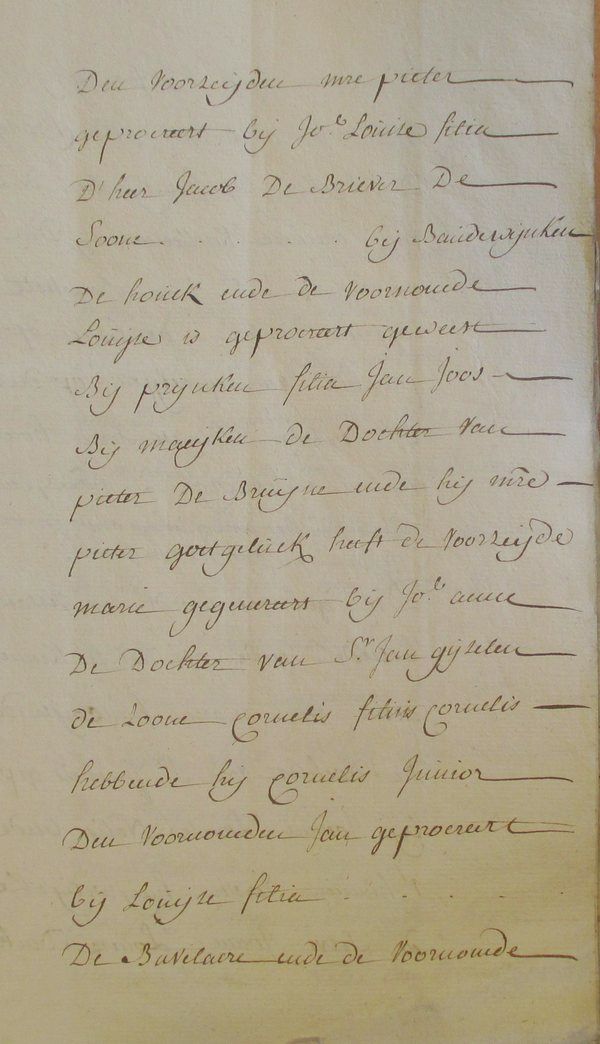 Den Voorzeijden mre pieter
geprocreert bij Jo.e Louise filia
D'heer Jacob De Briever De
Soone . . . . . bij Baudewijnken
De honck ende de Voornomde
Louijse is geprocreert geweest
Bij prijnken filia Jan Joos
Bij maeijken de Dochter Van
pieter De Bruijne ende hij mre
pieter goetgeluck heeft de Voorzeijde
marie gegenereert bij Jo.e anne
De Dochter van Sr Jan gijselen
de Loone cornelis filius cornelis
hebbende hij cornelis Junior
Den Voornomden Jan geprocreert
bij Louijse filia . . . .
De Bavelaere ende de Voornomde